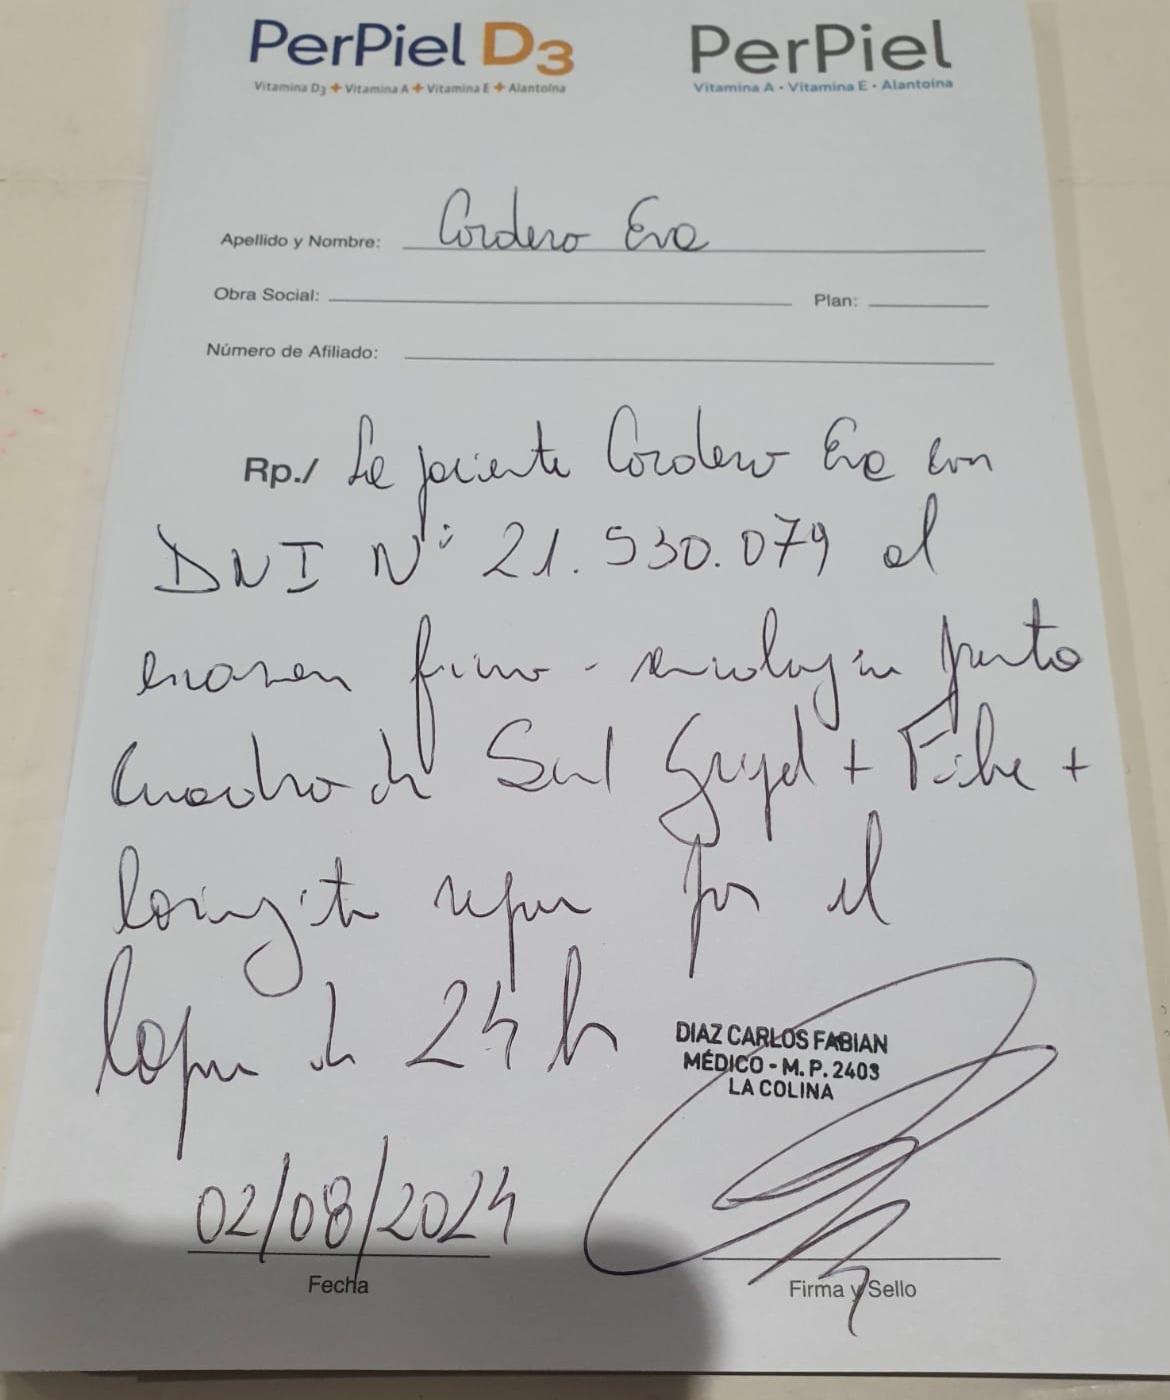 PerPiel D3 PerPiel
Vitamina D3 + Vitamina A + Vitamina E + Alantoína Vitamina A • Vitamina E • Alantoína
Apellido y Nombre: Cordero Eva
Obra Social: Plan:
Número de Afiliado:
Rp./ La paciente Cordero Eva con
DNI Nº 21.530.079 al
examen fisico - semiologico presento
Cuadro de Sind Gripal + Fiebre +
laringitis repose por el
lapso de 24 h
DIAZ CARLOS FABIAN
MÉDICO - M. P. 2403
LA COLINA
02/08/2024
Fecha Firma y Sello